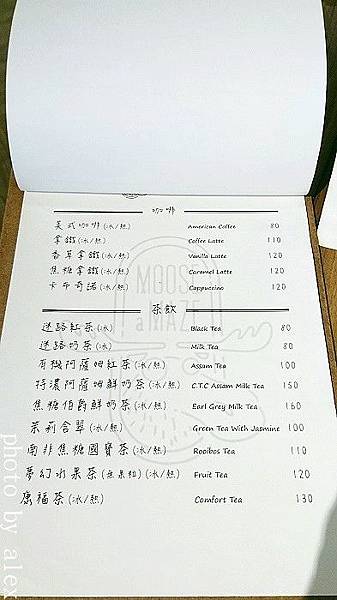 咖啡
美式咖啡(冰/熱) American Coffee 80
拿鐵(冰/熱) Coffee Latte 110
香草拿鐵(冰/熱) Vanilla Latte 120
焦糖拿鐵(冰/熱) Caramel Latte 120
卡布奇諾(冰/熱) Cappuccino 120
MOOSE
a MAZE
茶飲
迷路紅茶(冰) Black Tea 80
迷路奶茶(冰) Milk Tea 80
有機阿薩姆紅茶(冰/熱) Assam Tea 100
特濃阿薩姆鮮奶茶(冰/熱) C.T.C Assam Milk Tea 150
焦糖伯爵鮮奶茶(冰/熱) Earl Grey Milk Tea 160
茉莉含翠(冰/熱) Green Tea With Jasmine 100
南非焦糖國寶茶(冰/熱) Rooibos Tea 110
夢幻水果茶(無果粒)(冰/熱) Fruit Tea 120
康福茶(冰/熱) Comfort Tea 130
photo by alex